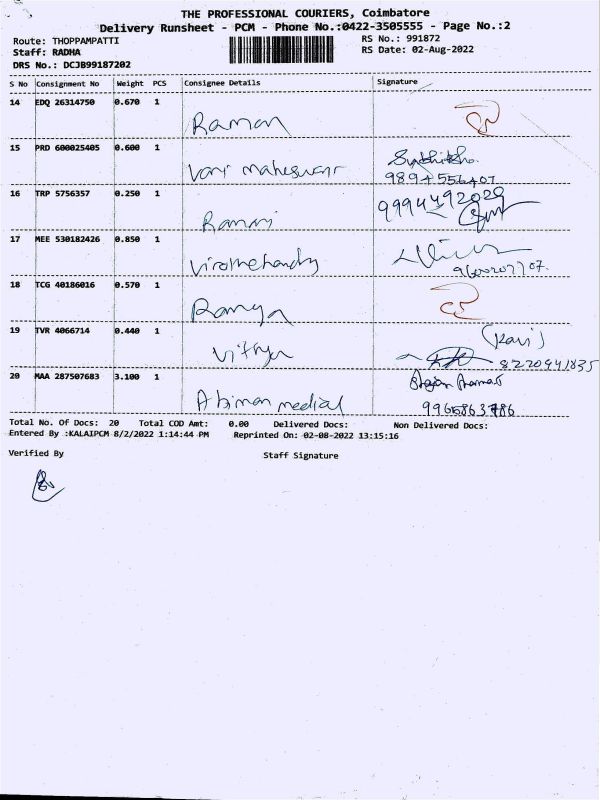 THE PROFESSIONAL COURIERS, Coimbatore
Delivery Runsheet - PCM - Phone No.:0422-3505555 - Page No.:2
Route: THOPPAMPATTI RS No.: 991872
Staff: RADHA RS Date: 02-Aug-2022
DRS No.: DCJB99187202
S No Consignment No Weight PCS Consignee Details Signature
14 EDQ 26314750 0.670 1 Raman
15 PRD 600025405 0.600 1 Vani maheswari
9894556407
16 TRP 5756357 0.250 1 9994492029
17 MEE 530182426 0.850 1
18 TCG 40186016 0.570 1 Ramya
(Ravi)
19 TVR 4066714 0.440 1 Vithya 8220941835
20 MAA 287507683 3.100 1
Abiman medical 9965863786
Total No. Of Docs: 20 Total COD Amt: 0.00 Delivered Docs: Non Delivered Docs:
Entered By :KALAIPCM 8/2/2022 1:14:44 PM Reprinted On: 02-08-2022 13:15:16
Verified By Staff Signature